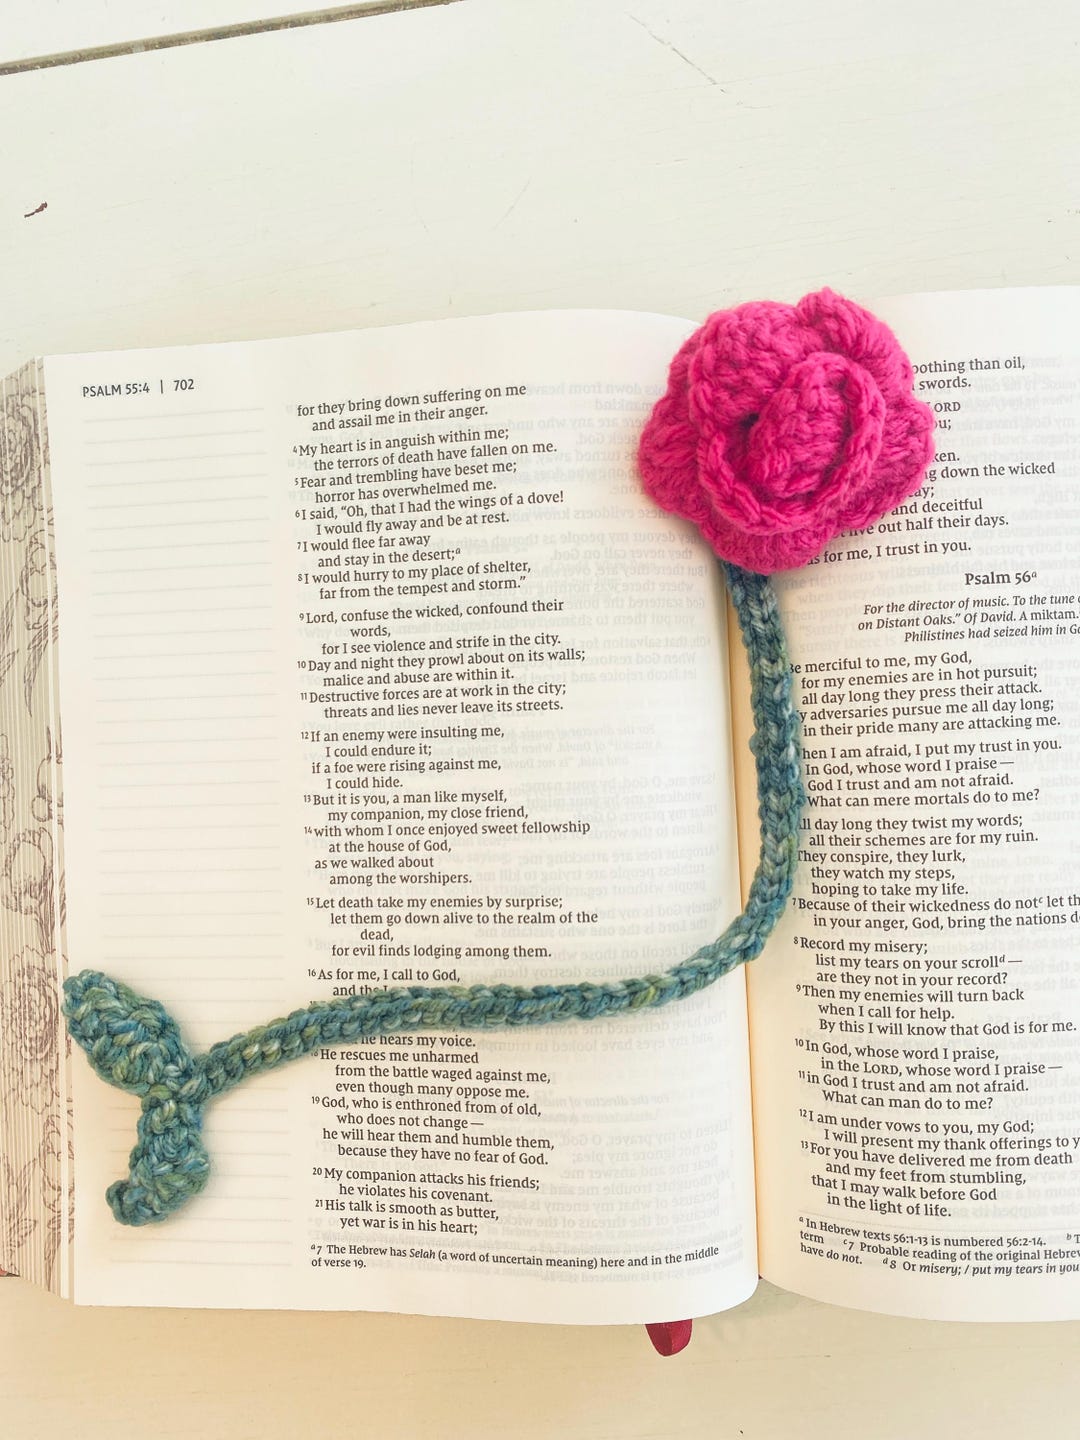 PSALM 55:4 | 702
for they bring down suffering on me
and assail me in their anger.
4 My heart is in anguish within me;
the terrors of death have fallen on me.
5 Fear and trembling have beset me;
horror has overwhelmed me.
6 I said, “Oh, that I had the wings of a dove!
I would fly away and be at rest.
7 I would flee far away
and stay in the desert;a
8 I would hurry to my place of shelter,
far from the tempest and storm.”
9 Lord, confuse the wicked, confound their
words,
for I see violence and strife in the city.
10 Day and night they prowl about on its walls;
malice and abuse are within it.
11 Destructive forces are at work in the city;
threats and lies never leave its streets.
12 If an enemy were insulting me,
I could endure it;
if a foe were rising against me,
I could hide.
13 But it is you, a man like myself,
my companion, my close friend,
14 with whom I once enjoyed sweet fellowship
at the house of God,
as we walked about
among the worshipers.
15 Let death take my enemies by surprise;
let them go down alive to the realm of the
dead,
for evil finds lodging among them.
16 As for me, I call to God,
and the
he hears my voice.
18 He rescues me unharmed
from the battle waged against me,
even though many oppose me.
19 God, who is enthroned from of old,
who does not change —
he will hear them and humble them,
because they have no fear of God.
20 My companion attacks his friends;
he violates his covenant.
21 His talk is smooth as butter,
yet war is in his heart;
a7 The Hebrew has Selah (a word of uncertain meaning) here and in the middle
of verse 19.
than oil,
swords.
down the wicked
and deceitful
out half their days.
for me, I trust in you.
Psalm 56a
For the director of music. To the tune
on Distant Oaks.” Of David. A miktam.
Philistines had seized him in
merciful to me, my God,
for my enemies are in hot pursuit;
all day long they press their attack.
adversaries pursue me all day long;
in their pride many are attacking me.
I am afraid, I put my trust in you.
In God, whose word I praise —
God I trust and am not afraid.
What can mere mortals do to me?
day long they twist my words;
all their schemes are for my ruin.
They conspire, they lurk,
they watch my steps,
hoping to take my life.
7 Because of their wickedness do notc let
in your anger, God, bring the nations
8 Record my misery;
list my tears on your scrolld —
are they not in your record?
9 Then my enemies will turn back
when I call for help.
By this I will know that God is for me.
10 In God, whose word I praise,
in the LORD, whose word I praise —
11 in God I trust and am not afraid.
What can man do to me?
12 I am under vows to you, my God;
I will present my thank offerings to
13 For you have delivered me from death
and my feet from stumbling,
that I may walk before God
in the light of life.
a In Hebrew texts 56:1-13 is numbered 56:2-14. b
term c7 Probable reading of the original
have do not. d8 Or misery; / put my tears in